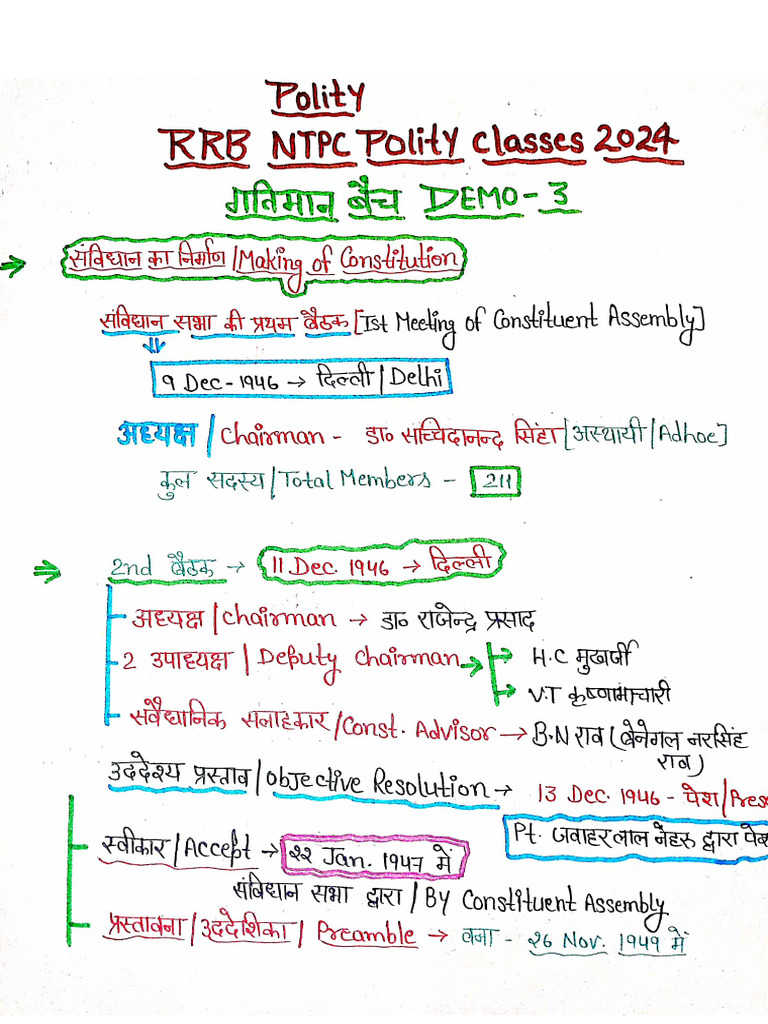 Polity
RRB NTPC Polity classes 2024
गतिमान बैच DEMO-3
संविधान का निर्माण/Making of Constitution
संविधान सभा की प्रथम बैठक [Ist Meeting of Constituent Assembly]
9 Dec-1946 → दिल्ली/Delhi
अध्यक्ष/Chairman - डा० सच्चिदानन्द सिंहा [अस्थायी/Adhoc]
कुल सदस्य/Total Members - 211
2nd बैठक → 11 Dec. 1946 → दिल्ली
अध्यक्ष/Chairman → डा० राजेन्द्र प्रसाद
2 उपाध्यक्ष/Deputy Chairman → H.C मुखर्जी
→ V.T कृष्णामाचारी
संवैधानिक सलाहकार/Const. Advisor → B.N राव (बेनेगल नरसिंह
राव)
उददेश्य प्रस्ताव/Objective Resolution → 13 Dec. 1946 - पेश/Pres
Pt. जवाहरलाल नेहरु द्वारा पे
स्वीकार/Accept → 22 Jan. 1947 में
संविधान सभा द्वारा/By Constituent Assembly
प्रस्तावना/उददेशिका/Preamble → बना - 26 Nov. 1949 में